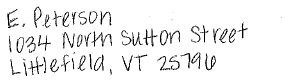 E. Peterson
1034 North Sutton Street
Littlefield, VT 25796